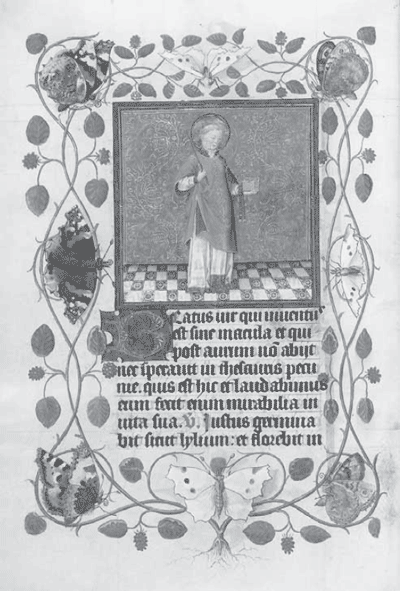 Beatus uir qui inuentus
est sine macula et qui
post aurum nõ abijt
nec sperauit in thesauris pecu
nie. quis est hic et laudabimus
eum fecit enim mirabilia in
uita sua. V. Iustus germina
bit sicut lylium: et florebit in